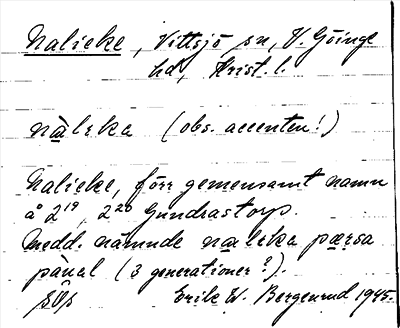 Nalieke, Vittsjö sn, V. Göinge
hd, Krist. l.
nàleka (obs. accenten!)
Nalieke, förr gemensamt namn
å 2¹⁹, 2²⁰ Gundrastorp.
Medd. nämnde naleka pærsa
pànal (3 generationer?).
Erik W. Bergenrud 1945.